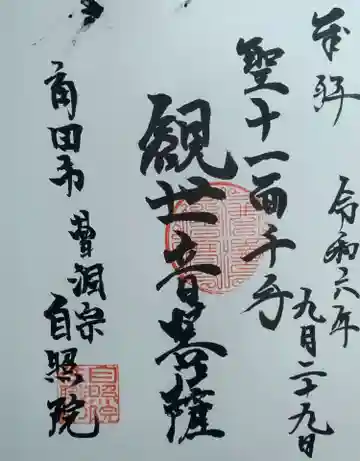 奉拝
令和六年
九月二十九日
聖十一面千手
観世音菩薩
角田市 曹洞宗
自照院